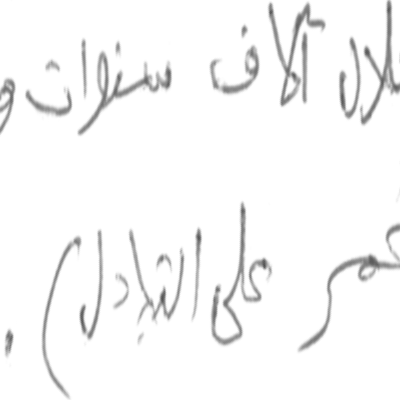 خلال آلاف سنوات و
عمر على التبادل).